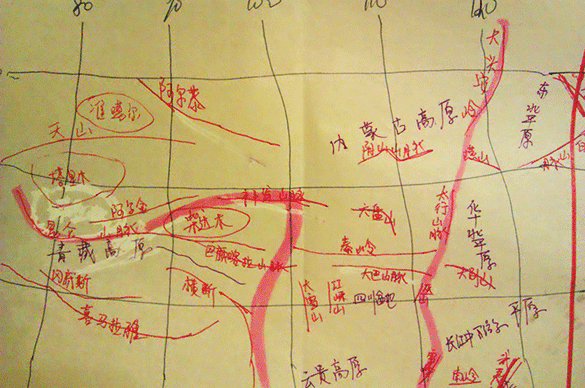 80
90
100
110
大兴安岭
阿尔泰
准噶尔
东北平原
内蒙古高原
天山
阴山山脉
燕山
塔里木
阿尔金山脉
祁连山脉
柴达木
六盘山
太行山脉
华北平原
昆仑
青藏高原
秦岭
巴颜喀拉山脉
大巴山脉
大别山
冈底斯
横断
四川盆地
巫山
喜马拉雅
长江中下游
平原
云贵高原
南岭